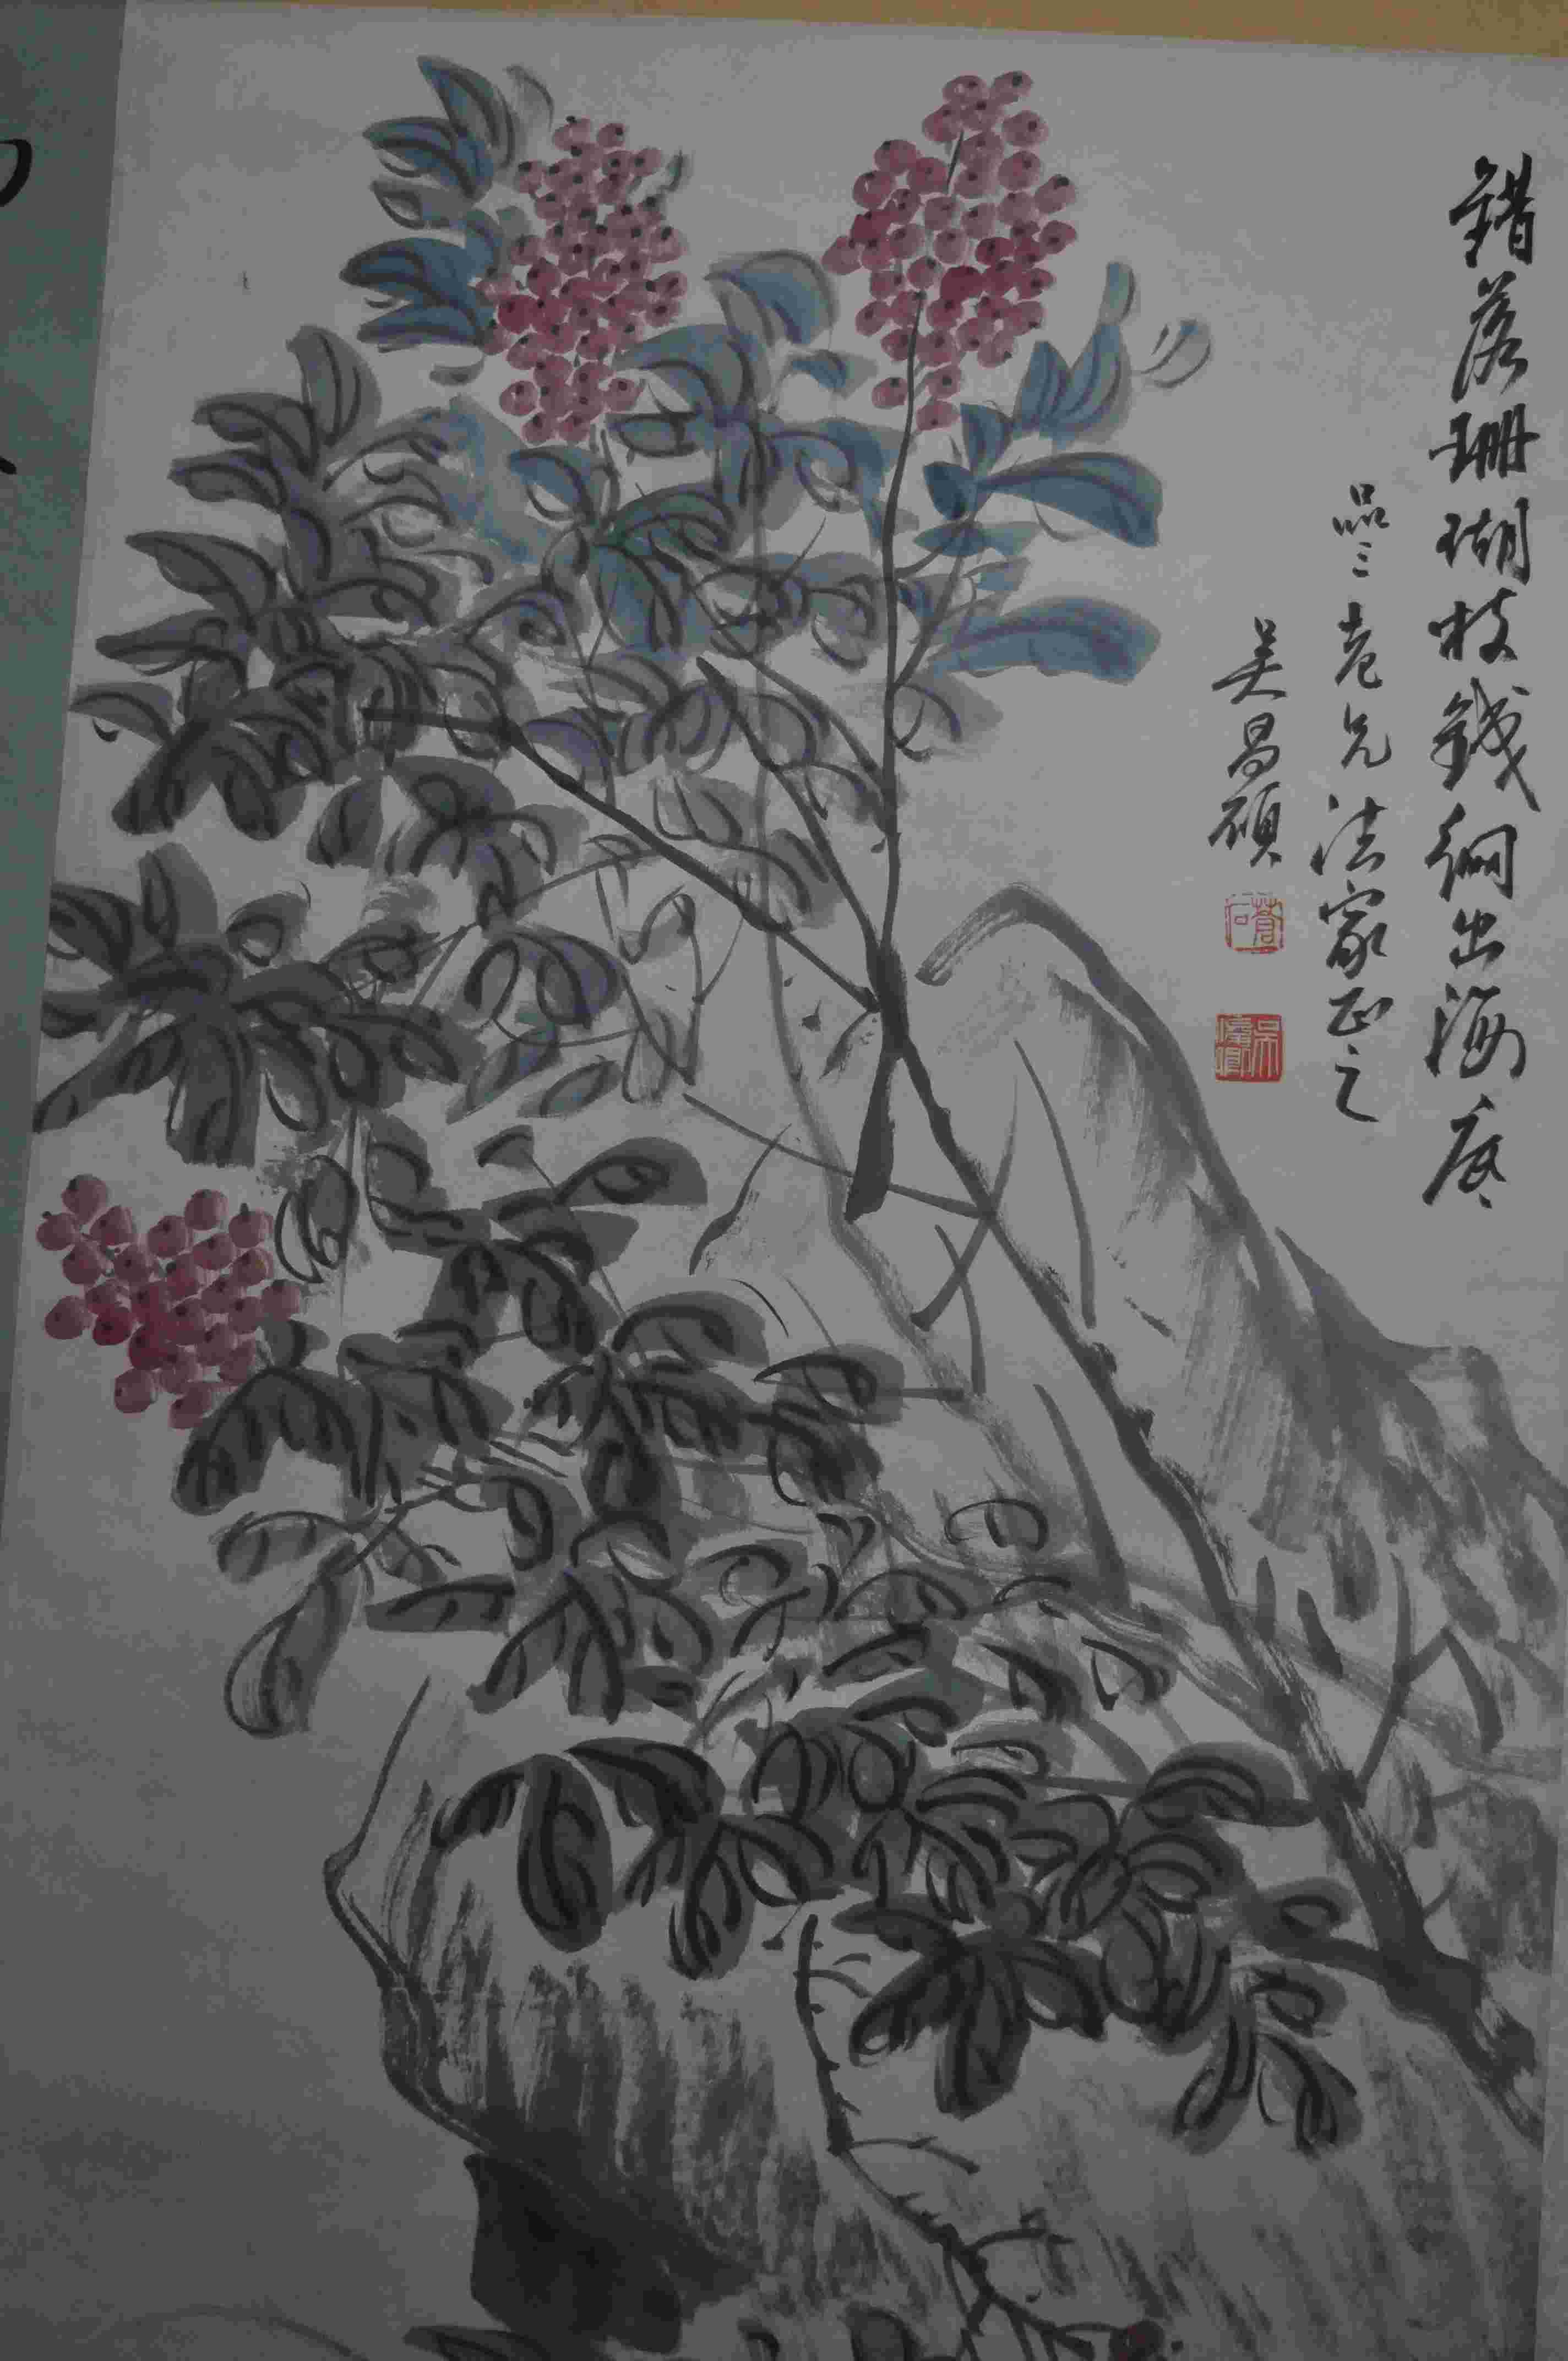 錯落珊瑚枝鐵網出海底
品三老兄法家正之
吳昌碩
蒼石